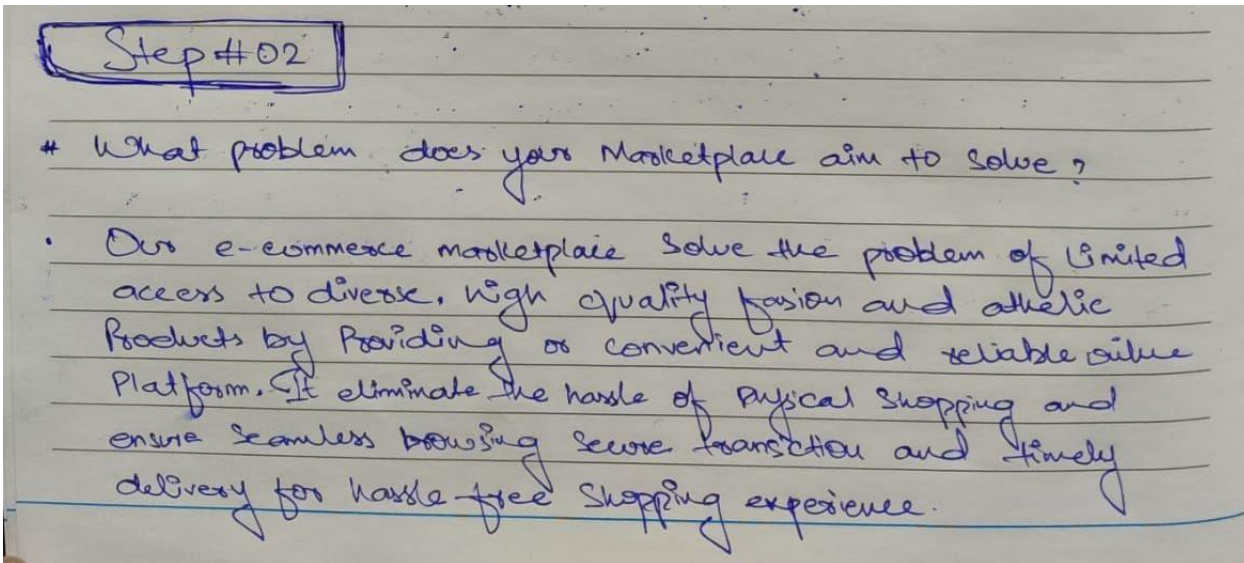 Step #02
# What problem does your Marketplace aim to solve?
• Our e-commerce marketplace solve the problem of Limited
access to diverse, high quality fasion and athelic
Products by Providing or convenient and reliable online
Platform. It eliminate the hassle of Pysical Shopping and
ensure Seamless browsing Secure transiction and timely
delivery for hassle-free Shopping experience.